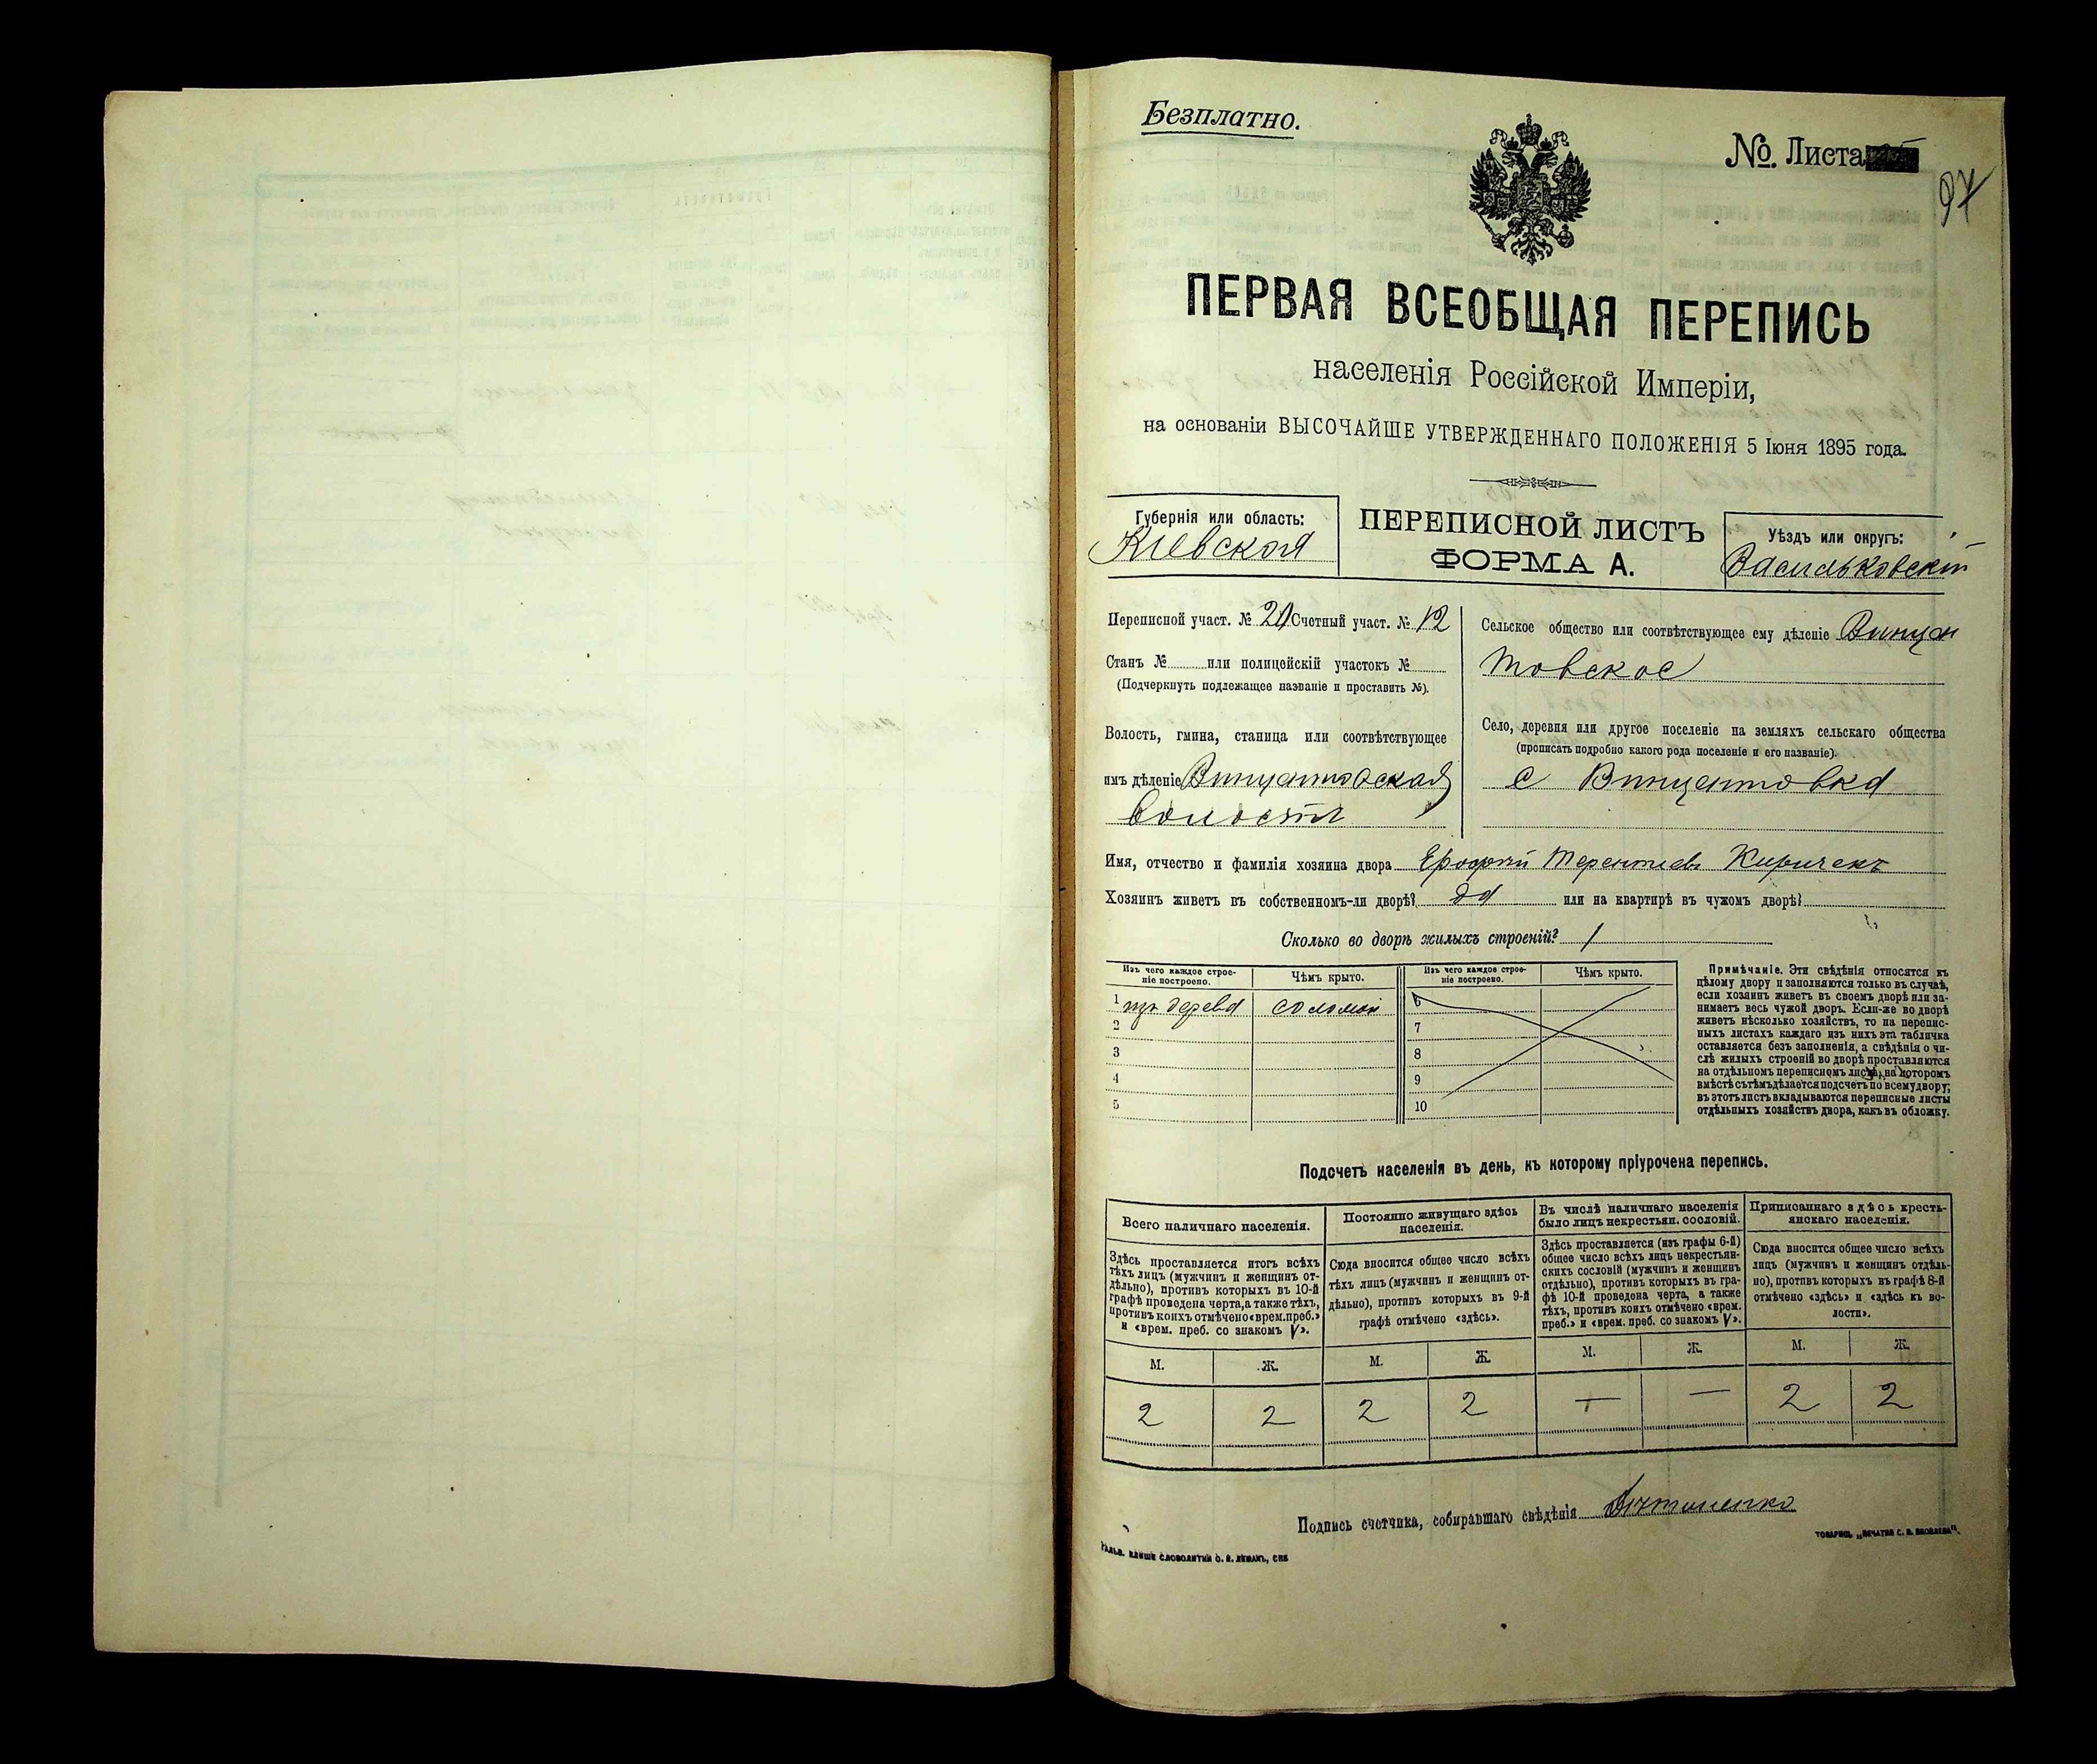 Безплатно.
№. Листа
97
ПЕРВАЯ ВСЕОБЩАЯ ПЕРЕПИСЬ
населенія Россійской Имперіи,
на основаніи ВЫСОЧАЙШЕ УТВЕРЖДЕННАГО ПОЛОЖЕНІЯ 5 Іюня 1895 года.
Губернія или область:
Кіевская
ПЕРЕПИСНОЙ ЛИСТЪ
ФОРМА А.
Уѣздъ или округъ:
Васильковскій
Переписной участ. № 20 Счетный участ. № 12
Станъ № или полицейскій участокъ №
(Подчеркнуть подлежащее названіе и проставить №).
Волость, гмина, станица или соотвѣтствующее
имъ дѣленіе Винцентовская
волость
Сельское общество или соотвѣтствующее ему дѣленіе Винцен
товское
Село, деревня или другое поселеніе на земляхъ сельскаго общества
(прописать подробно какого рода поселеніе и его названіе).
с Винцентовка
Имя, отчество и фамилія хозяина двора Ерофей Терентіевъ Киричекъ
Хозяинъ живетъ въ собственномъ-ли дворѣ? да или на квартирѣ въ чужомъ дворѣ?
Сколько во дворѣ жилыхъ строеній? 1
Изъ чего каждое строе-
ніе построено.
Чѣмъ крыто.
Изъ чего каждое строе-
ніе построено.
Чѣмъ крыто.
1 изъ дерева соломой 6
2 7
3 8
4 9
5 10
Примѣчаніе. Эти свѣдѣнія относятся къ
цѣлому двору и заполняются только въ случаѣ,
если хозяинъ живетъ въ своемъ дворѣ или за-
нимаетъ весь чужой дворъ. Если-же во дворѣ
живетъ нѣсколько хозяйствъ, то на перепис-
ныхъ листахъ каждаго изъ нихъ эта табличка
оставляется безъ заполненія, а свѣдѣнія о чи-
слѣ жилыхъ строеній во дворѣ проставляются
на отдѣльномъ переписномъ листѣ, на которомъ
вмѣстѣ съ тѣмъ дѣлается подсчетъ по всему двору;
въ этотъ листъ вкладываются переписные листы
отдѣльныхъ хозяйствъ двора, какъ въ обложку.
Подсчетъ населенія въ день, къ которому пріурочена перепись.
Всего наличнаго населенія.
Постоянно живущаго здѣсь
населенія.
Въ числѣ наличнаго населенія
было лицъ некрестьян. сословій.
Приписаннаго здѣсь кресть-
янскаго населенія.
Здѣсь проставляется итогъ всѣхъ
тѣхъ лицъ (мужчинъ и женщинъ от-
дѣльно), противъ которыхъ въ 10-й
графѣ проведена черта, а также тѣхъ,
противъ коихъ отмѣчено «врем. преб.»
и «врем. преб. со знакомъ V».
Сюда вносится общее число всѣхъ
тѣхъ лицъ (мужчинъ и женщинъ от-
дѣльно), противъ которыхъ въ 9-й
графѣ отмѣчено «здѣсь».
Здѣсь проставляется (изъ графы 6-й)
общее число всѣхъ лицъ некрестьян-
скихъ сословій (мужчинъ и женщинъ
отдѣльно), противъ которыхъ въ гра-
фѣ 10-й проведена черта, а также
тѣхъ, противъ коихъ отмѣчено «врем.
преб.» и «врем. преб. со знакомъ V».
Сюда вносится общее число всѣхъ
лицъ (мужчинъ и женщинъ отдѣль-
но), противъ которыхъ въ графѣ 8-й
отмѣчено «здѣсь» и «здѣсь къ во-
лости».
М. Ж. М. Ж. М. Ж. М. Ж.
2 2 2 2 — — 2 2
Подпись счетчика, собиравшаго свѣдѣнія
ГАЛЬВ. КЛИШЕ СЛОВОЛИТНИ О. И. ЛЕМАНЪ, СПБ
ТОВАРИЩ. „ПЕЧАТНЯ С. П. ЯКОВЛЕВА".